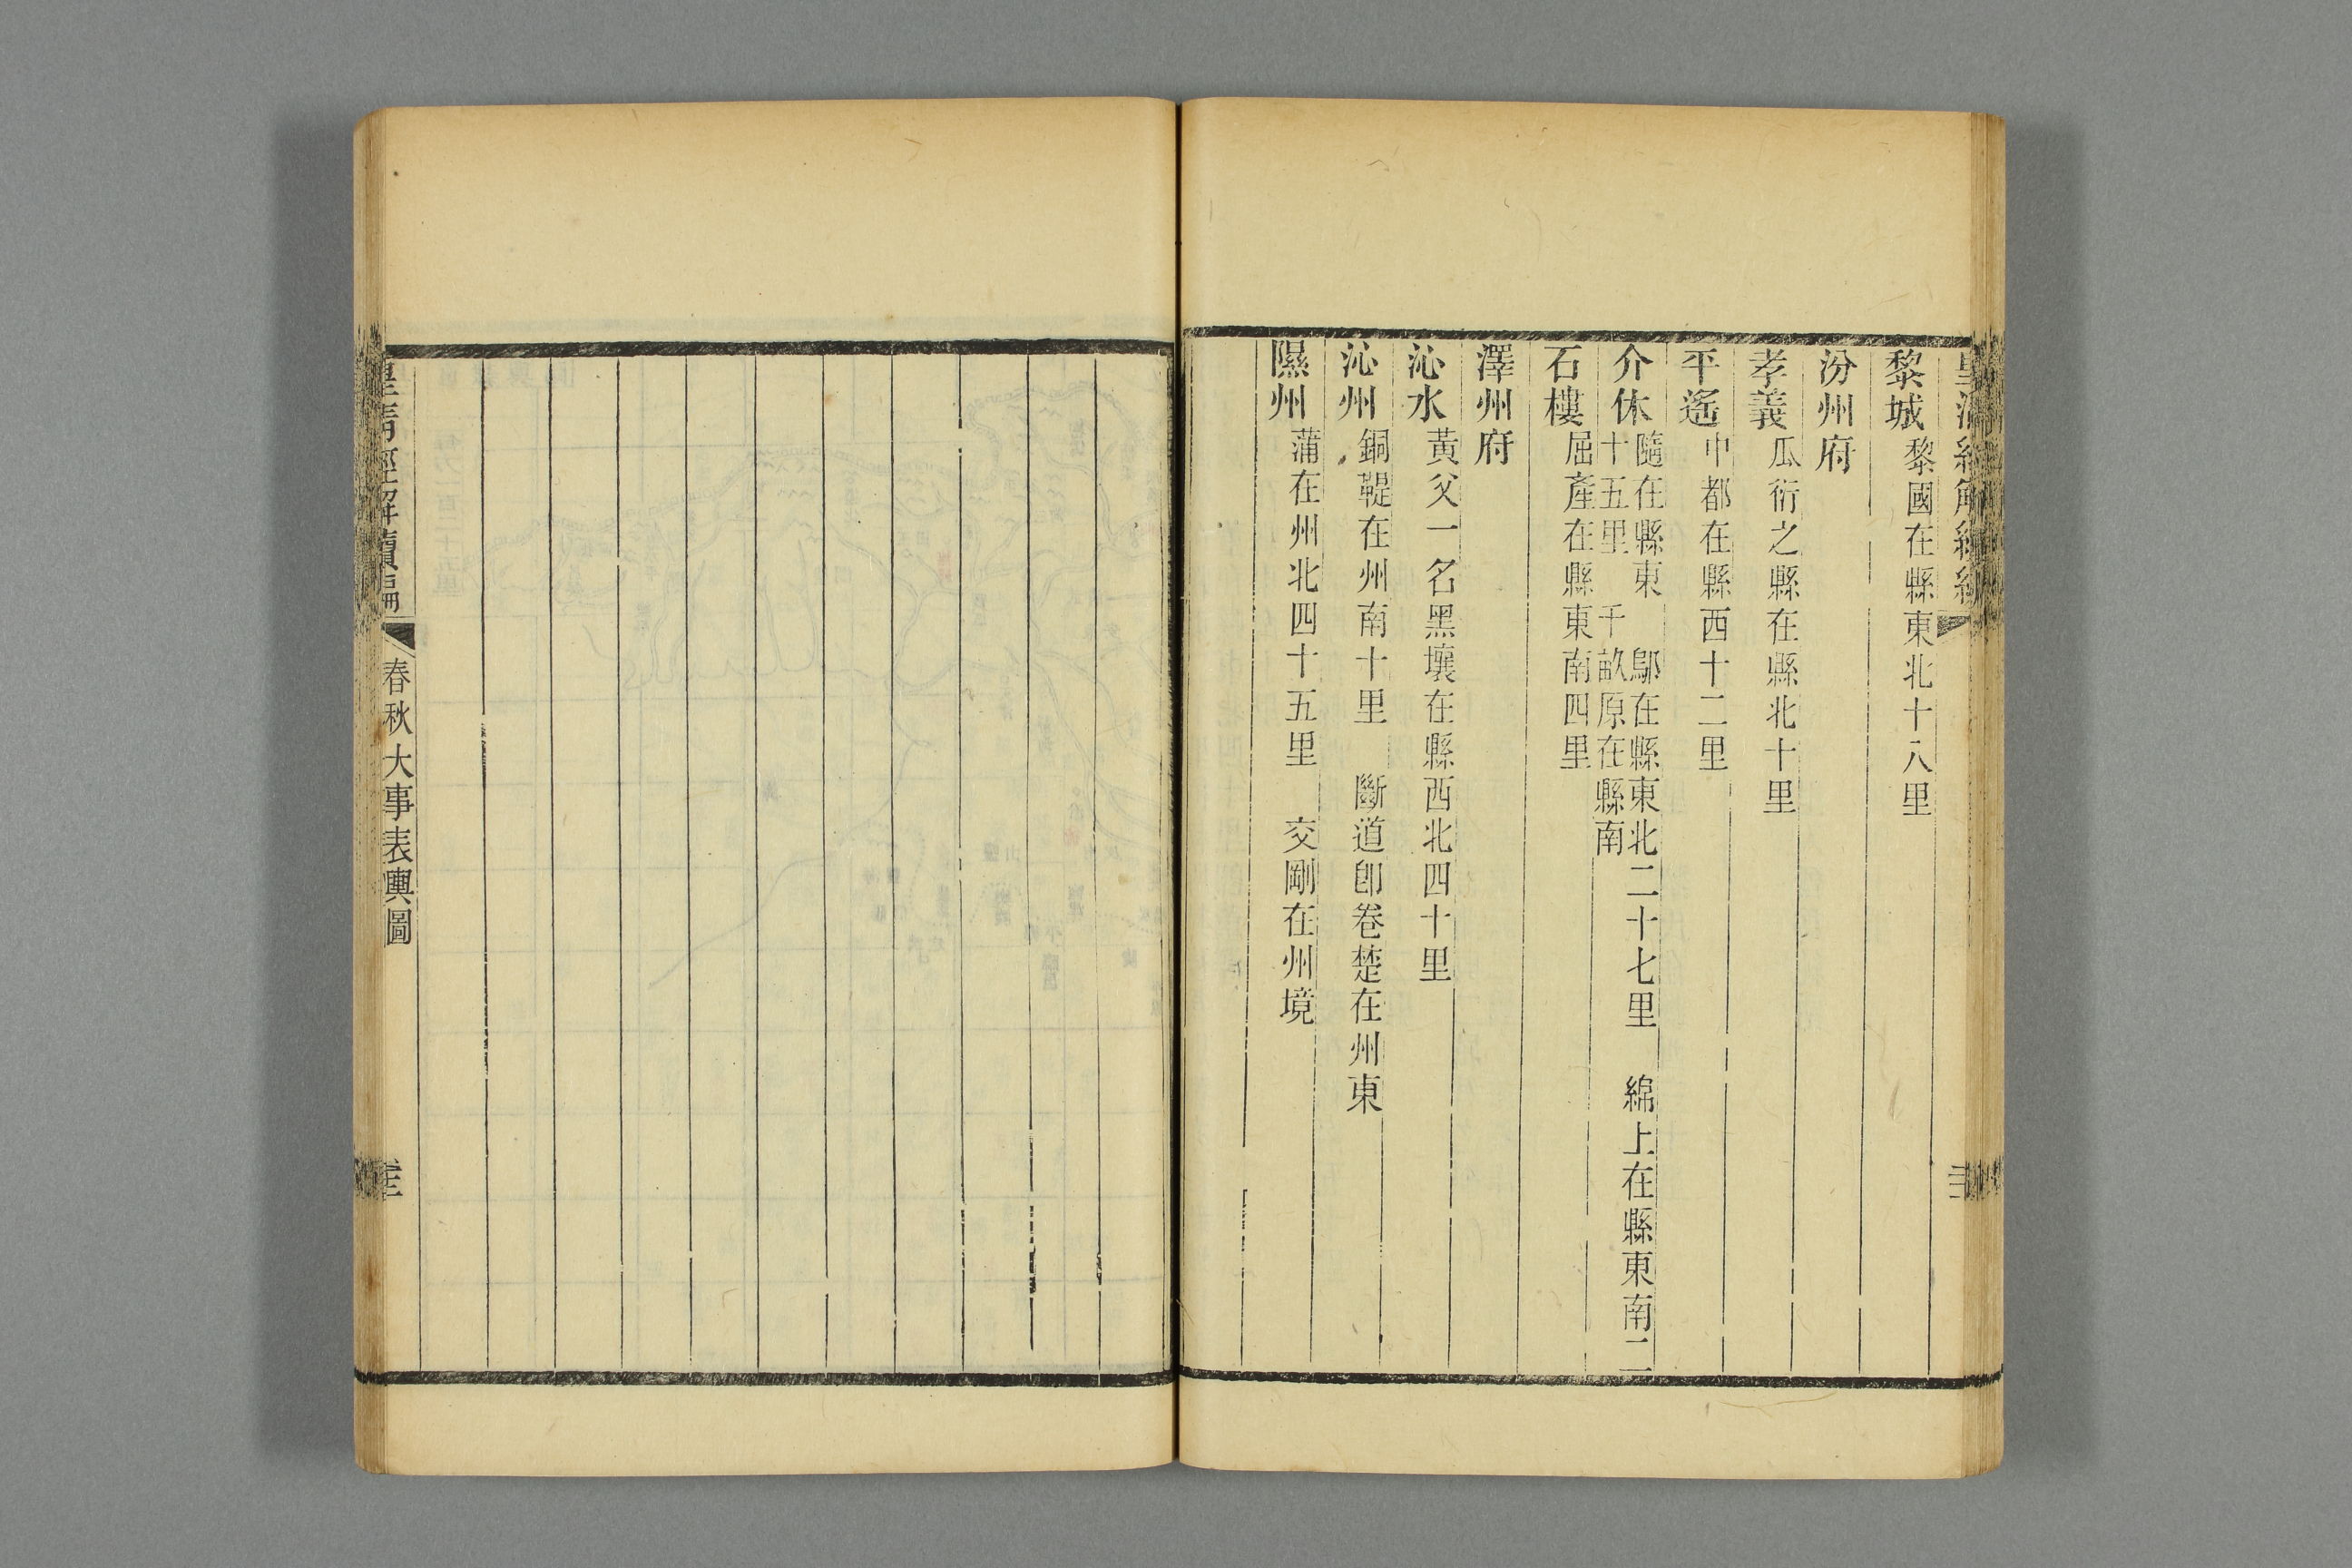 黎城 黎國在縣東北十八里
汾州府
孝義 瓜衍之縣在縣北十里
平遙 中都在縣西十二里
介休 隨在縣東 鄔在縣東北二十七里 綿上在縣東南二
十五里 千畝原在縣南
石樓 屈產在縣東南四里
澤州府
沁水 黃父一名黑壤在縣西北四十里
沁州 銅鞮在州南十里 斷道卽卷楚在州東
隰州 蒲在州北四十五里 交剛在州境
皇清經解續編 春秋大事表輿圖